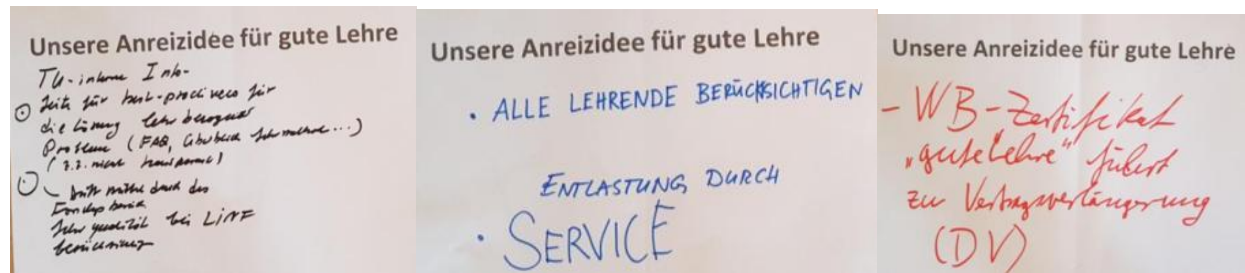 Unsere Anreizidee für gute Lehre
TU-interne Info-
Seite für best-practices für
die Lösung lehrbezogener
Probleme (FAQ, Überblick
(z.Z. nicht transparent)
bei LINF
Unsere Anreizidee für gute Lehre
• ALLE LEHRENDE BERÜCKSICHTIGEN
ENTLASTUNG DURCH
• SERVICE
Unsere Anreizidee für gute Lehre
- WB-Zertifikat
"gute Lehre" führt
zu Vertragsverlängerung
(DV)